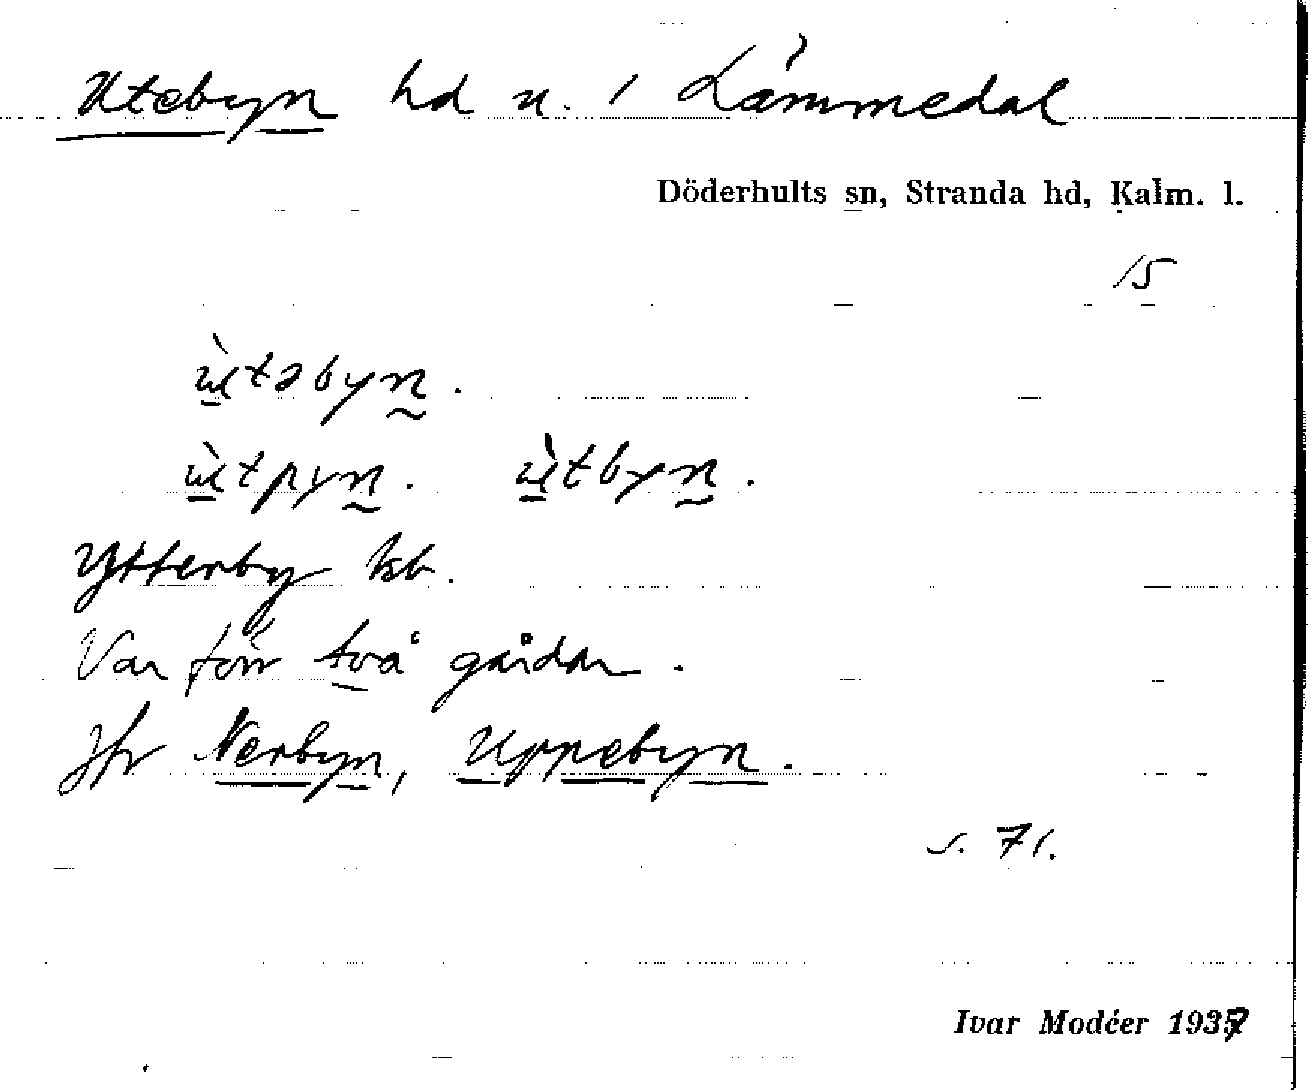 Utebyn hd u. 1 Lämmedal
Döderhults sn, Stranda hd, Kalm. l.
15
ùtəbyn.
ùtpyn. ùtbyn.
Ytterby kb.
Var förr två gårdar.
Jfr Nerbyn, Uppebyn.
s. 71.
Ivar Modéer 1937